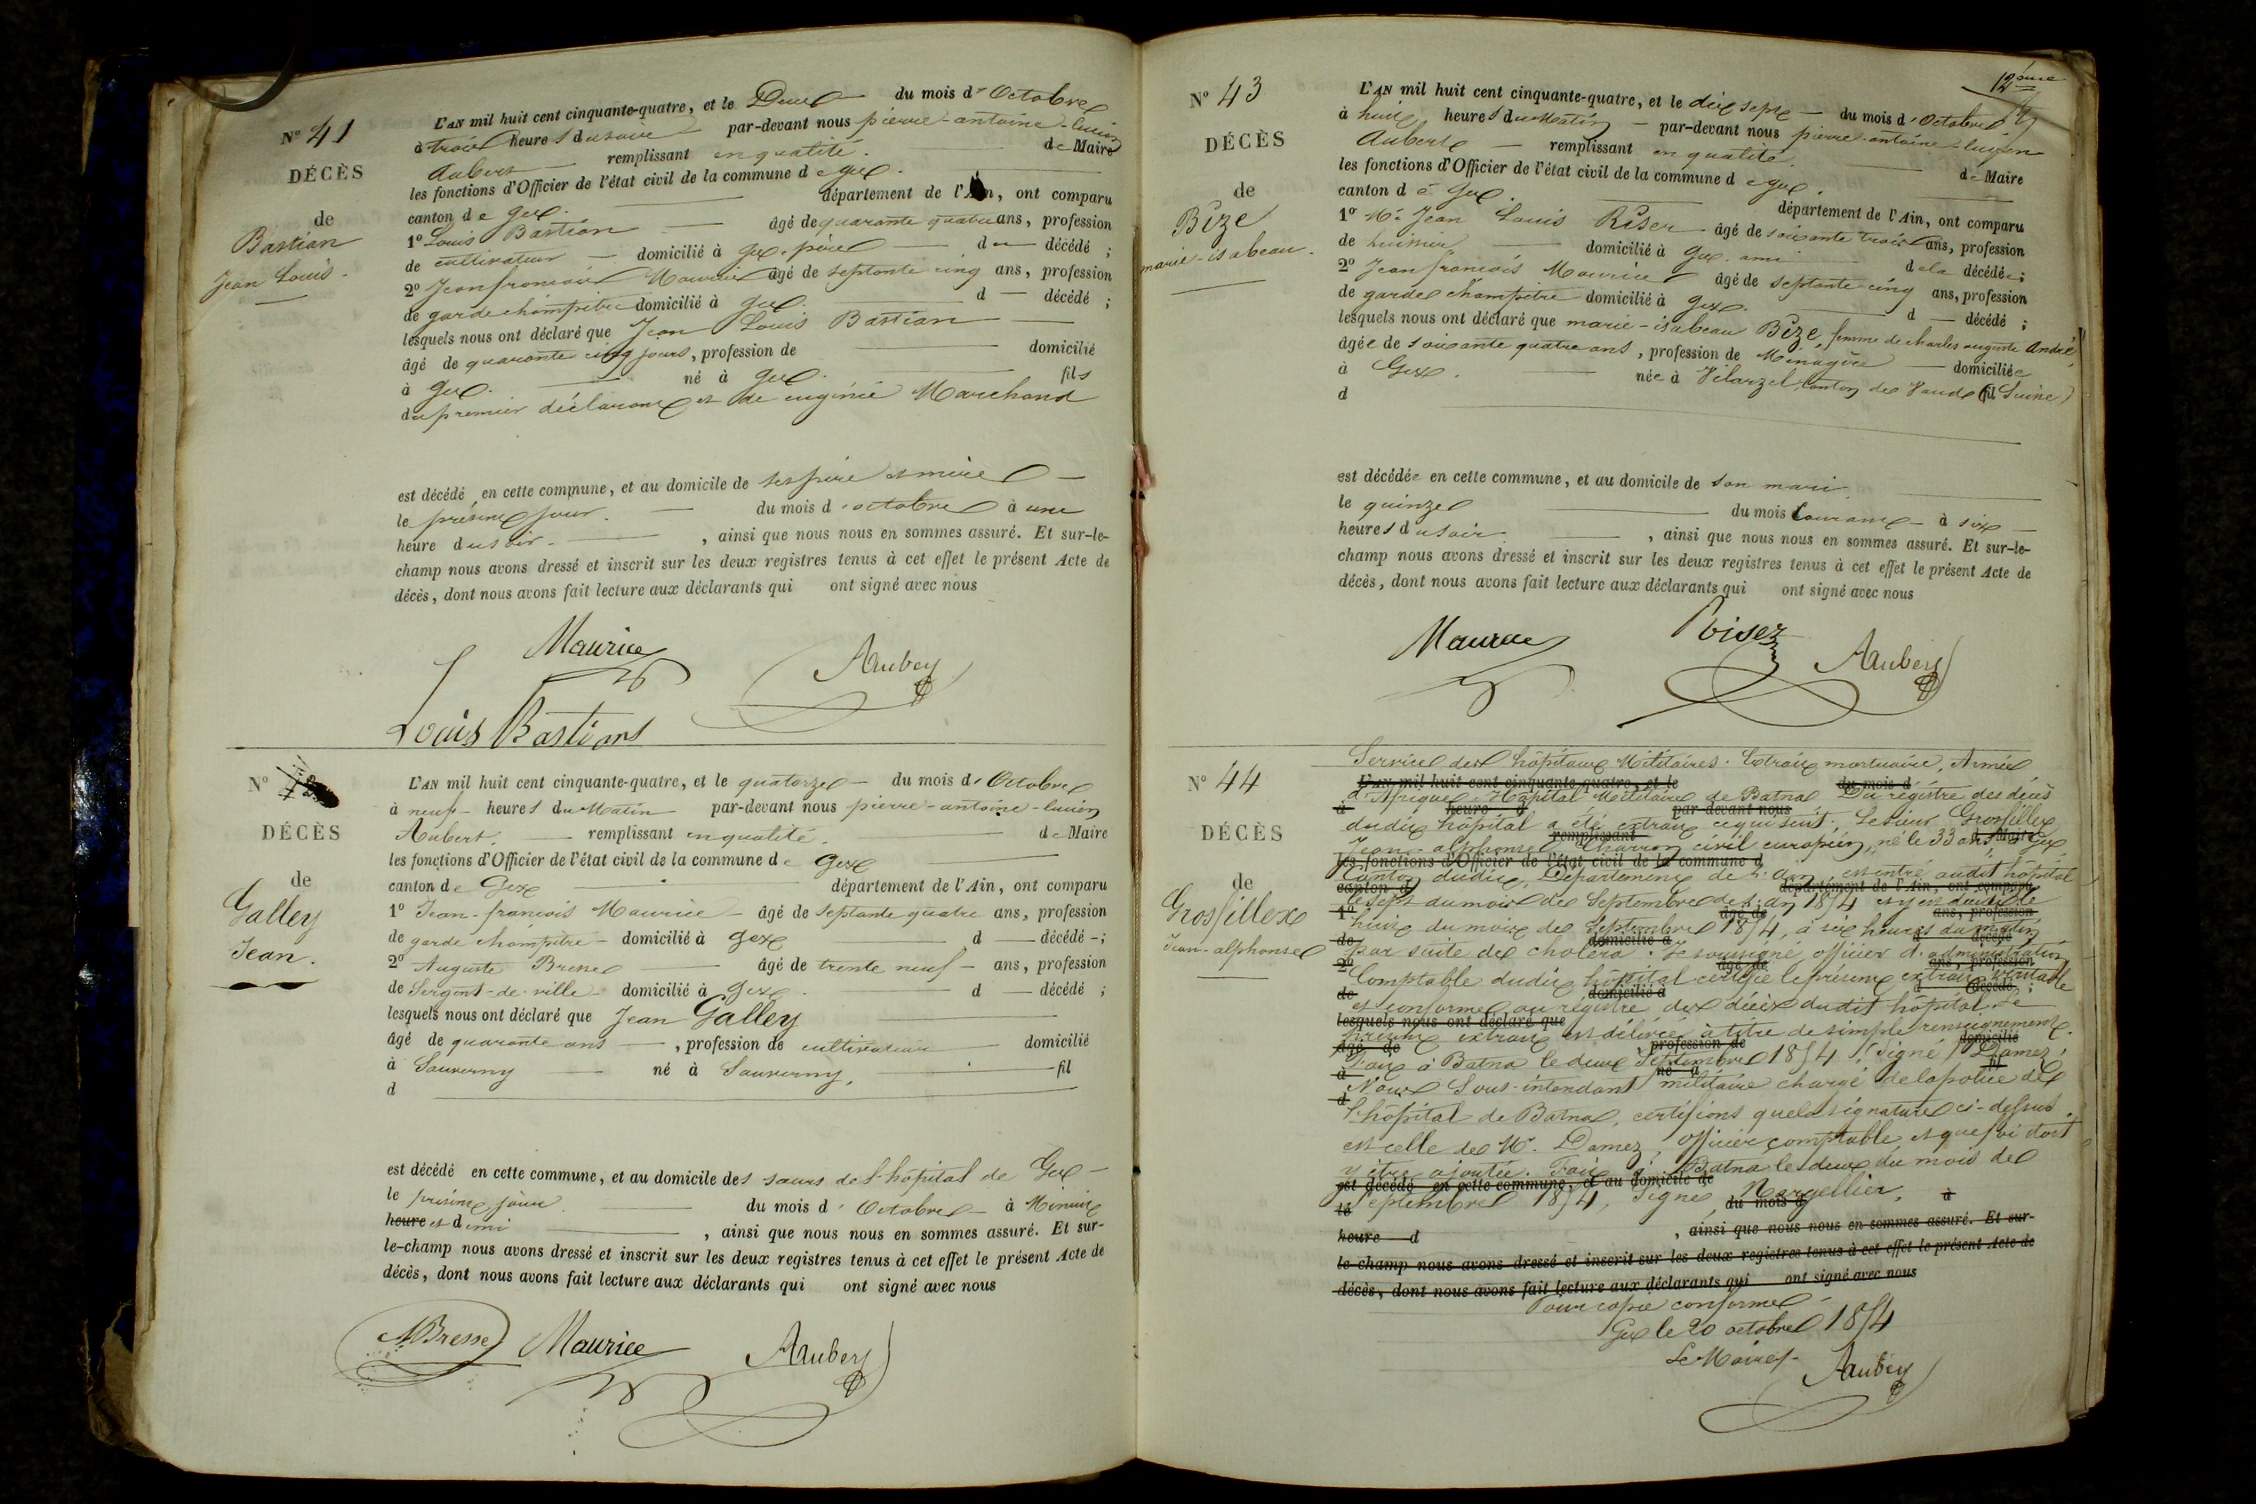 N° 41
DÉCÈS
de
Bastian
Jean Louis.
L'AN mil huit cent cinquante-quatre, et le Deux du mois d'Octobre
à trois heures du soir par-devant nous pierre-antoine-lucien
Aubert remplissant en qualité. de Maire
les fonctions d'Officier de l'état civil de la commune de gex.
canton de gex. département de l'Ain, ont comparu
1° Louis Bastian âgé de quarante quatre ans, profession
de cultivateur domicilié à gex. père du décédé ;
2° Jean françois Maurice âgé de septante cinq ans, profession
de garde champêtre domicilié à gex. d décédé ;
lesquels nous ont déclaré que Jean Louis Bastian
âgé de quarante cinq jours, profession de domicilié
à gex. né à gex. fils
du premier déclarant et de eugénie Marchand
est décédé en cette commune, et au domicile de ses père et mère
le présent jour. du mois d'octobre à une
heure du soir. , ainsi que nous nous en sommes assuré. Et sur-le-
champ nous avons dressé et inscrit sur les deux registres tenus à cet effet le présent Acte de
décès, dont nous avons fait lecture aux déclarants qui ont signé avec nous
Maurice
Aubert
Louis Bastians
N°
DÉCÈS
de
Galley
Jean.
L'AN mil huit cent cinquante-quatre, et le quatorze du mois d'Octobre
à neuf heures du Matin par-devant nous pierre-antoine-lucien
Aubert. remplissant en qualité. de Maire
les fonctions d'Officier de l'état civil de la commune de Gex
canton de Gex département de l'Ain, ont comparu
1° Jean-françois Maurice âgé de septante quatre ans, profession
de garde champêtre domicilié à gex d décédé ;
2° Auguste Bresse âgé de trente neuf ans, profession
de Sergent-de-ville domicilié à Gex. d décédé ;
lesquels nous ont déclaré que Jean Galley
âgé de quarante ans , profession de cultivateur domicilié
à Sauverny né à Sauverny. fil
d
est décédé en cette commune, et au domicile des sœurs de l'hôpital de Gex
le présent jour. du mois d'Octobre à Minuit
heure et demi , ainsi que nous nous en sommes assuré. Et sur-
le-champ nous avons dressé et inscrit sur les deux registres tenus à cet effet le présent Acte de
décès, dont nous avons fait lecture aux déclarants qui ont signé avec nous
ABresse Maurice Aubert
12ème
N° 43
DÉCÈS
de
Bize
marie-isabeau.
L'AN mil huit cent cinquante-quatre, et le dix sept du mois d'Octobre
à huit heures du Matin par-devant nous pierre-antoine-lucien
Aubert remplissant en qualité. de Maire
les fonctions d'Officier de l'état civil de la commune de gex.
canton de Gex. département de l'Ain, ont comparu
1° Mr. Jean Louis Riser âgé de soixante trois ans, profession
de huissier domicilié à Gex. ami de la décédée ;
2° Jean françois Maurice âgé de septante cinq ans, profession
de garde champêtre domicilié à gex. d décédé ;
lesquels nous ont déclaré que marie-isabeau Bize, femme de charles auguste André,
âgée de soixante quatre ans, profession de Ménagère domiciliée
à Gex. née à Vilarzel, canton de Vaud (Suisse) fil
d
est décédée en cette commune, et au domicile de son mari.
le quinze du mois courant à six
heures du soir. , ainsi que nous nous en sommes assuré. Et sur-le-
champ nous avons dressé et inscrit sur les deux registres tenus à cet effet le présent Acte de
décès, dont nous avons fait lecture aux déclarants qui ont signé avec nous
Maurice Riser Aubert
N° 44
DÉCÈS
de
Grosfillex
Jean-alphonse
Service des hôpitaux Militaires. Extrait mortuaire, Armée
L'AN mil huit cent cinquante-quatre, et le du mois d
d'Afrique. Hôpital Militaire de Batna Du régistre des décès
à heure d par-devant nous
dudit hôpital a été extrait ce qui suit. Le sieur Grosfillex
remplissant d Maire
Jean-alphonse, Charron civil européen, né le 33 ans, à Gex
les fonctions d'Officier de l'état civil de la commune d
Canton dudit, Département de l'ain, est entré audit hôpital
canton d département de l'Ain, ont comparu
le sept du mois de Septembre de l'an 1854 et y est décédé le
1° âgé de ans, profession
huit du mois de Septembre 1854, à six heures du matin
de domicilié à d décédé
par suite de choléra. Je soussigné officier d'administration
2° âgé de ans, profession
Comptable dudit hôpital certifie le présent extrait véritable
de domicilié à d décédé ;
et conforme au régistre des décès dudit hôpital. Le
lesquels nous ont déclaré que
présent extrait est délivré à titre de simple renseignement.
âgé de , profession de domicilié
Fait à Batna le deux Septembre 1854. (signé) Damez,
à né à fil
Nous Sous-intendant militaire chargé de la police de
d
l'hôpital de Batna, certifions que la signature ci-dessus
est celle de Mr. Damez, officier comptable et que foi doit
y être ajoutée. Fait à Batna le deux du mois de
est décédé en cette commune, et au domicile de
Septembre 1854, Signé,
le du mois d à
heure d , ainsi que nous nous en sommes assuré. Et sur-
le-champ nous avons dressé et inscrit sur les deux registres tenus à cet effet le présent Acte de
décès, dont nous avons fait lecture aux déclarants qui ont signé avec nous
Pour copie conforme
Gex le 20 octobre 1854
Le Maire
Aubert